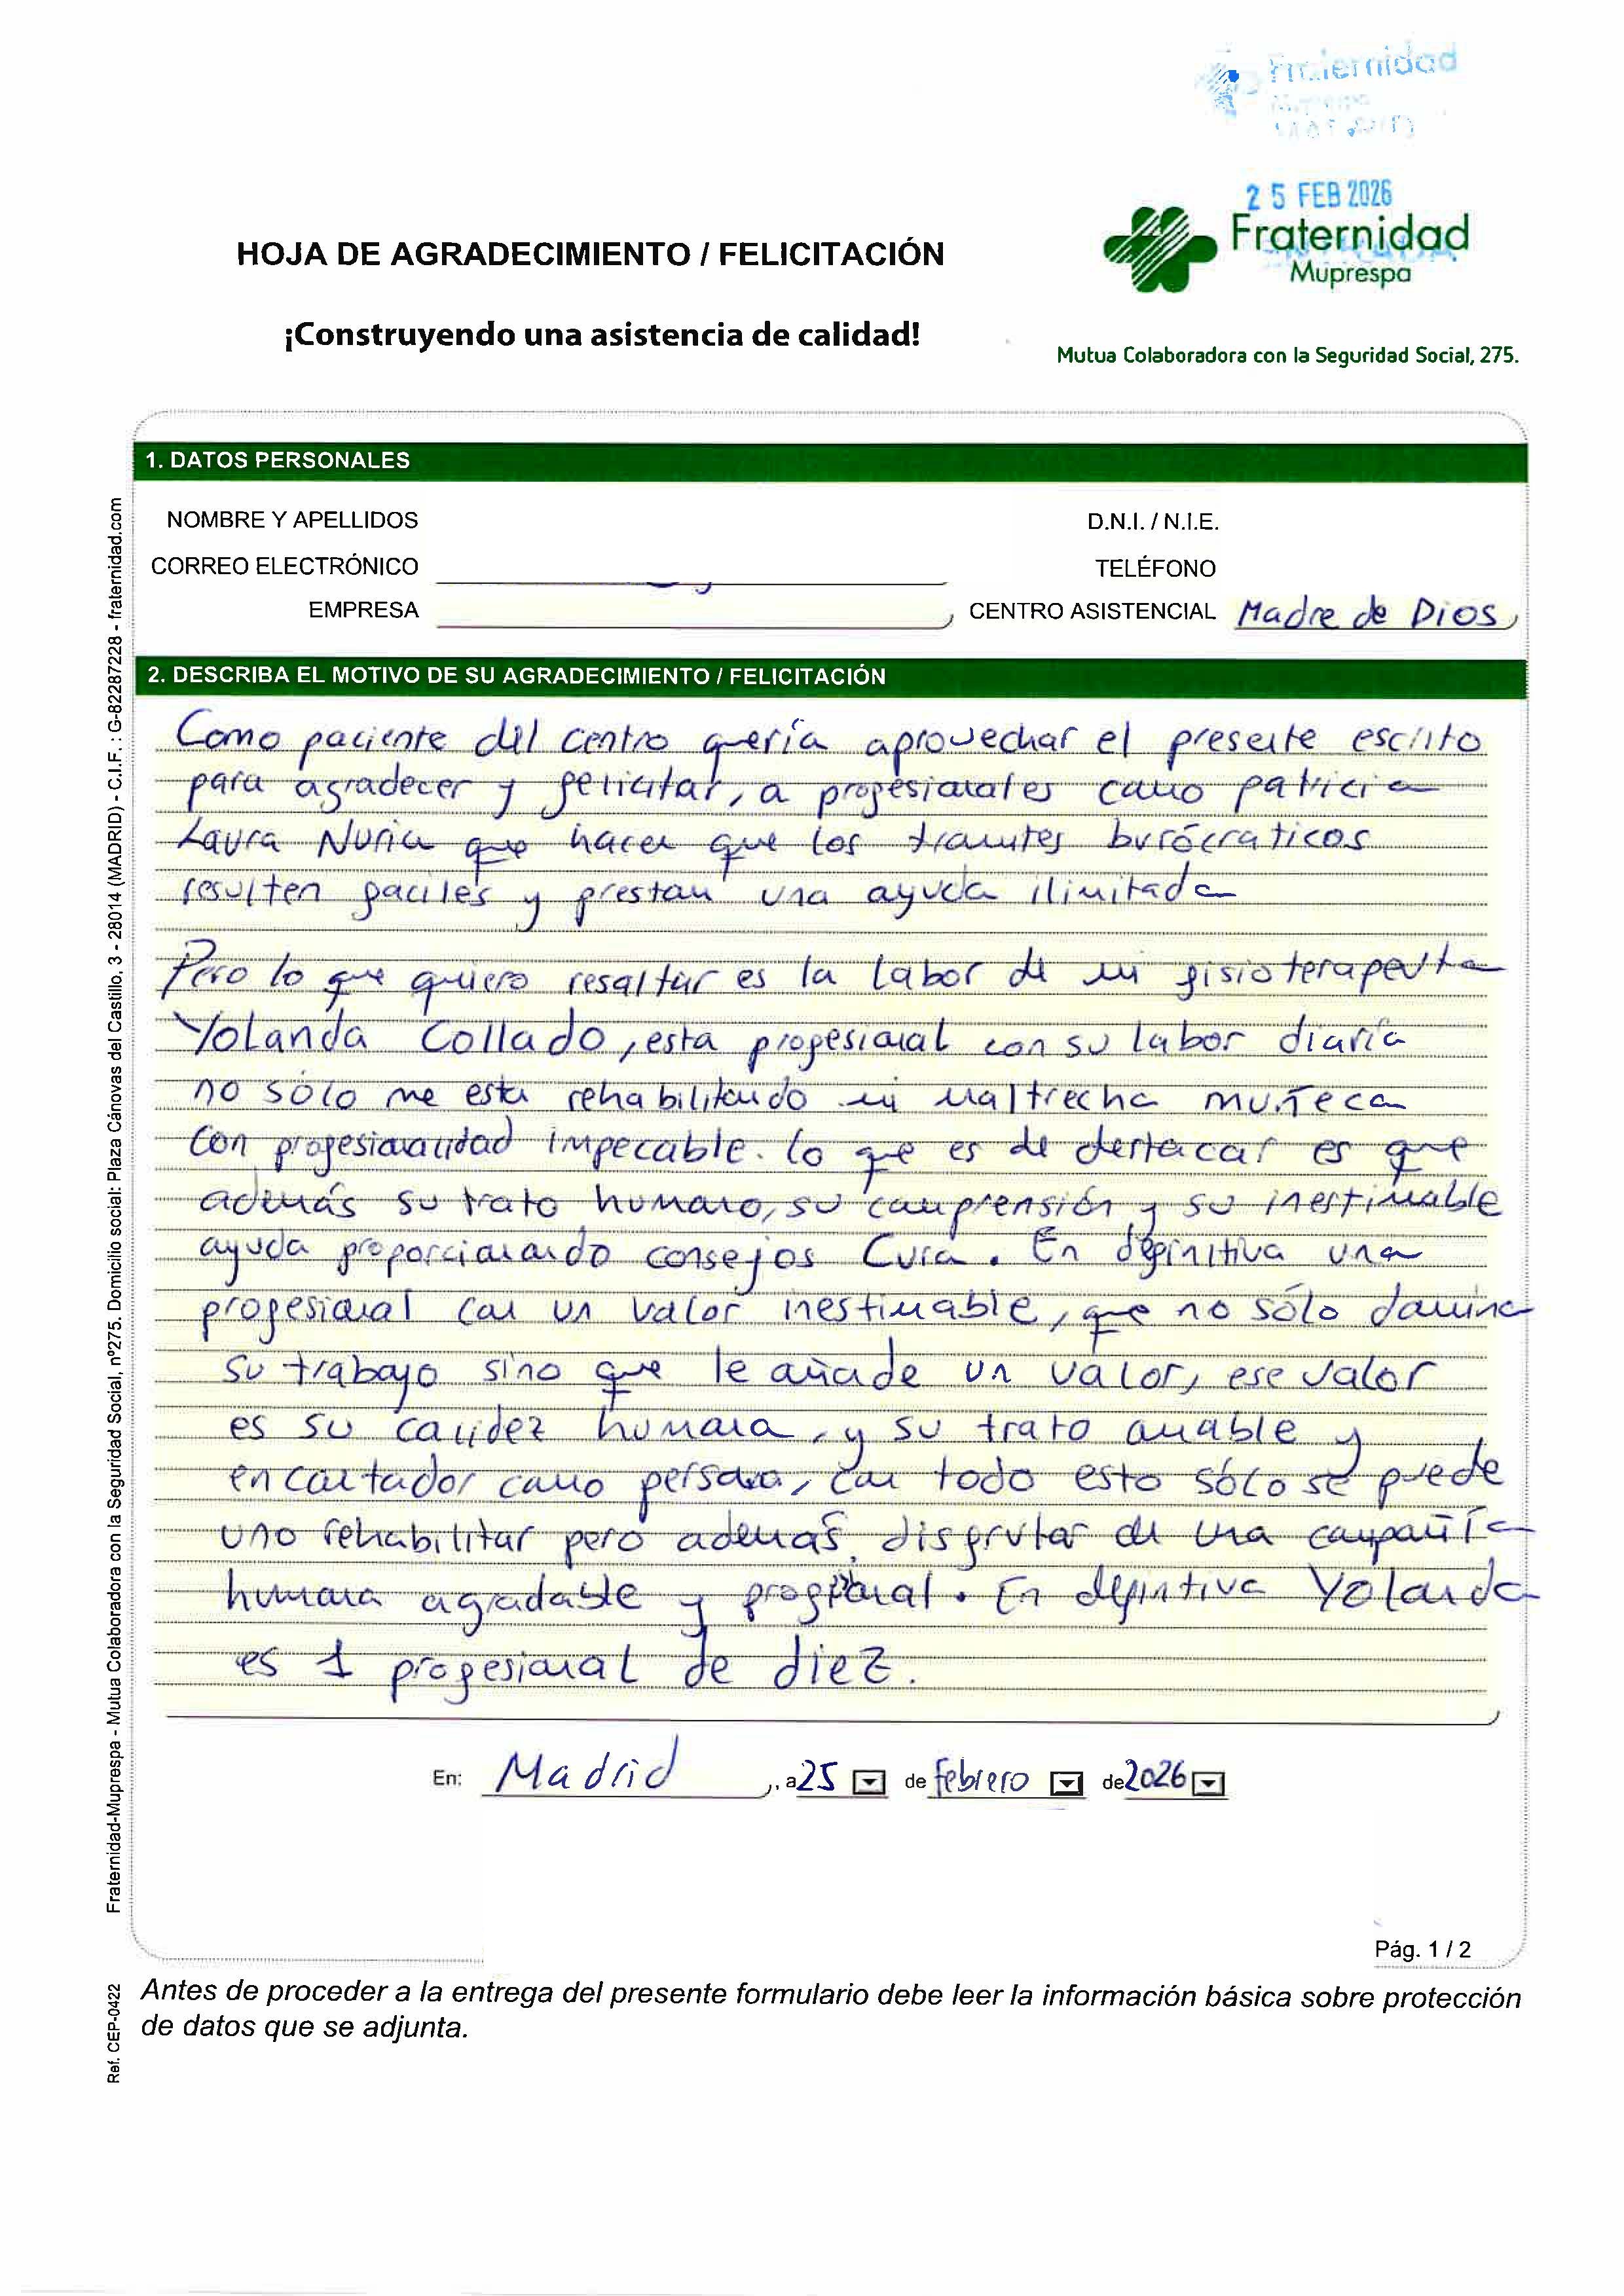 Fraternidad
25 FEB 2026
HOJA DE AGRADECIMIENTO / FELICITACIÓN
Fraternidad
Muprespa
¡Construyendo una asistencia de calidad!
Mutua Colaboradora con la Seguridad Social, 275.
1. DATOS PERSONALES
NOMBRE Y APELLIDOS
D.N.I. / N.I.E.
CORREO ELECTRÓNICO
TELÉFONO
EMPRESA
CENTRO ASISTENCIAL Madre de Dios
2. DESCRIBA EL MOTIVO DE SU AGRADECIMIENTO / FELICITACIÓN
Como paciente del centro quería aprovechar el presente escrito
para agradecer y felicitar, a profesionales como patricia
Laura Nuria que hacen que los tramites burócraticos
resulten faciles y prestan una ayuda ilimitada
Pero lo que quiero resaltar es la labor de mi fisioterapeuta
Yolanda Collado, esta profesional con su labor diaria
no sólo me esta rehabilitando mi maltrecha muñeca
con profesionalidad impecable. lo que es de destacar es que
además su trato humano, su comprensión y su inestimable
ayuda proporcionando consejos Cura. En definitiva una
profesional con un valor inestimable, que no sólo domina
su trabajo sino que le añade un valor, ese valor
es su calidez humana, y su trato amable y
encantador como persona, con todo esto sólo se puede
uno rehabilitar pero además disfrutar de una compañía
humana agradable y profesional. En defintiva Yolanda
es 1 profesional de diez.
En: Madrid, a 25 de febrero de 2026
Pág. 1 / 2
Antes de proceder a la entrega del presente formulario debe leer la información básica sobre protección
de datos que se adjunta.
Fraternidad-Muprespa - Mutua Colaboradora con la Seguridad Social, nº275. Domicilio social: Plaza Cánovas del Castillo, 3 - 28014 (MADRID) - C.I.F. : G-82287228 - fraternidad.com
Ref. CEP-0422